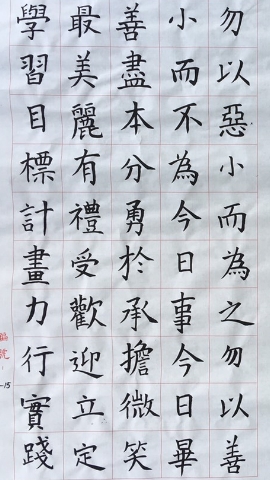 勿以惡小而為之勿以善
小而不為今日事今日畢
善盡本分勇於承擔微笑
最美麗有禮受歡迎立定
學習目標計畫力行實踐
編號
-15